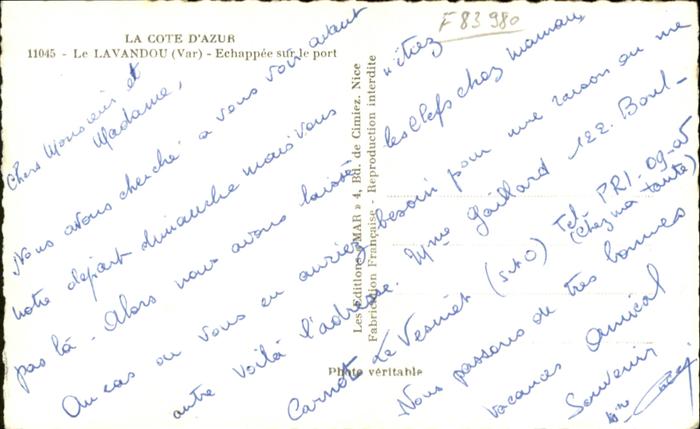 F 83 980
LA COTE D'AZUR
11045 - Le LAVANDOU (Var) - Echappée sur le port
Chers Monsieur et
Madame,
Nous avons cherché à vous voir avant
notre départ dimanche mais vous
pas là - Alors nous avons laissé
les clefs chez maman,
Au cas ou vous en auriez besoin pour une raison ou une
autre voilà l'adresse. Mme Gaillard 122. Boul-
Carnot Le Vesinet (S&O) Tel. PRI-09-05
(chez ma tante)
Nous passons de très bonnes
vacances Amical
Souvenir
Les Editions "MAR" 4, Bd. de Cimiez, Nice
Fabrication Française - Reproduction interdite
Photo véritable